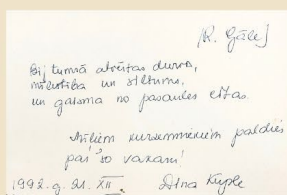 [R. Gāle]
Bij tumsā atvērtas durvis,
mīlestība un siltums,
un gaisma no pasaules
Mīļiem kursemniekiem paldies
par šo vakaru!
1992.g. 21. XII. Dina Kuple